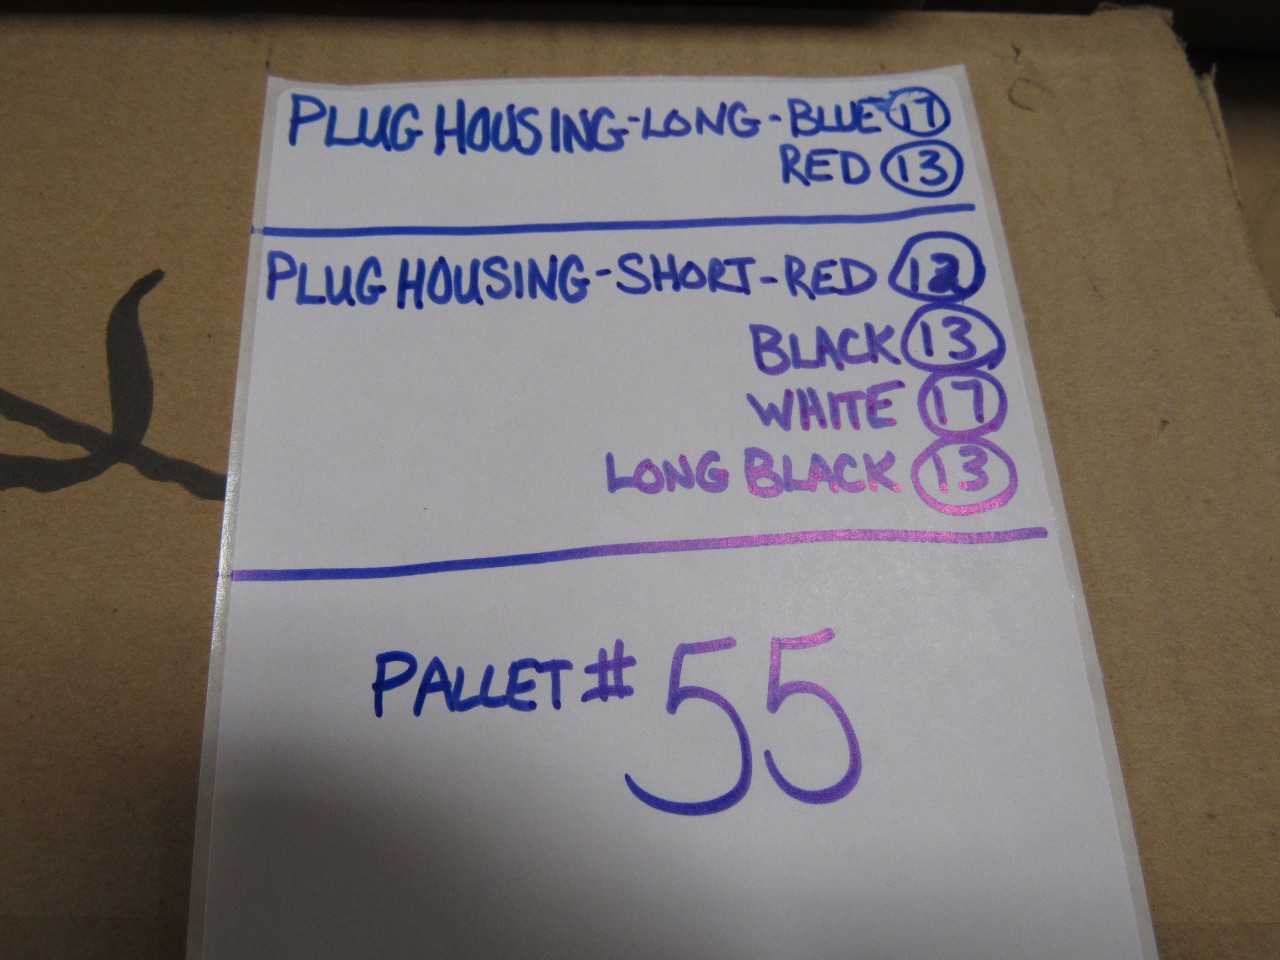 PLUG HOUSING-LONG-BLUE 17
RED 13
PLUG HOUSING-SHORT-RED 12
BLACK 13
WHITE 17
LONG BLACK 13
PALLET # 55